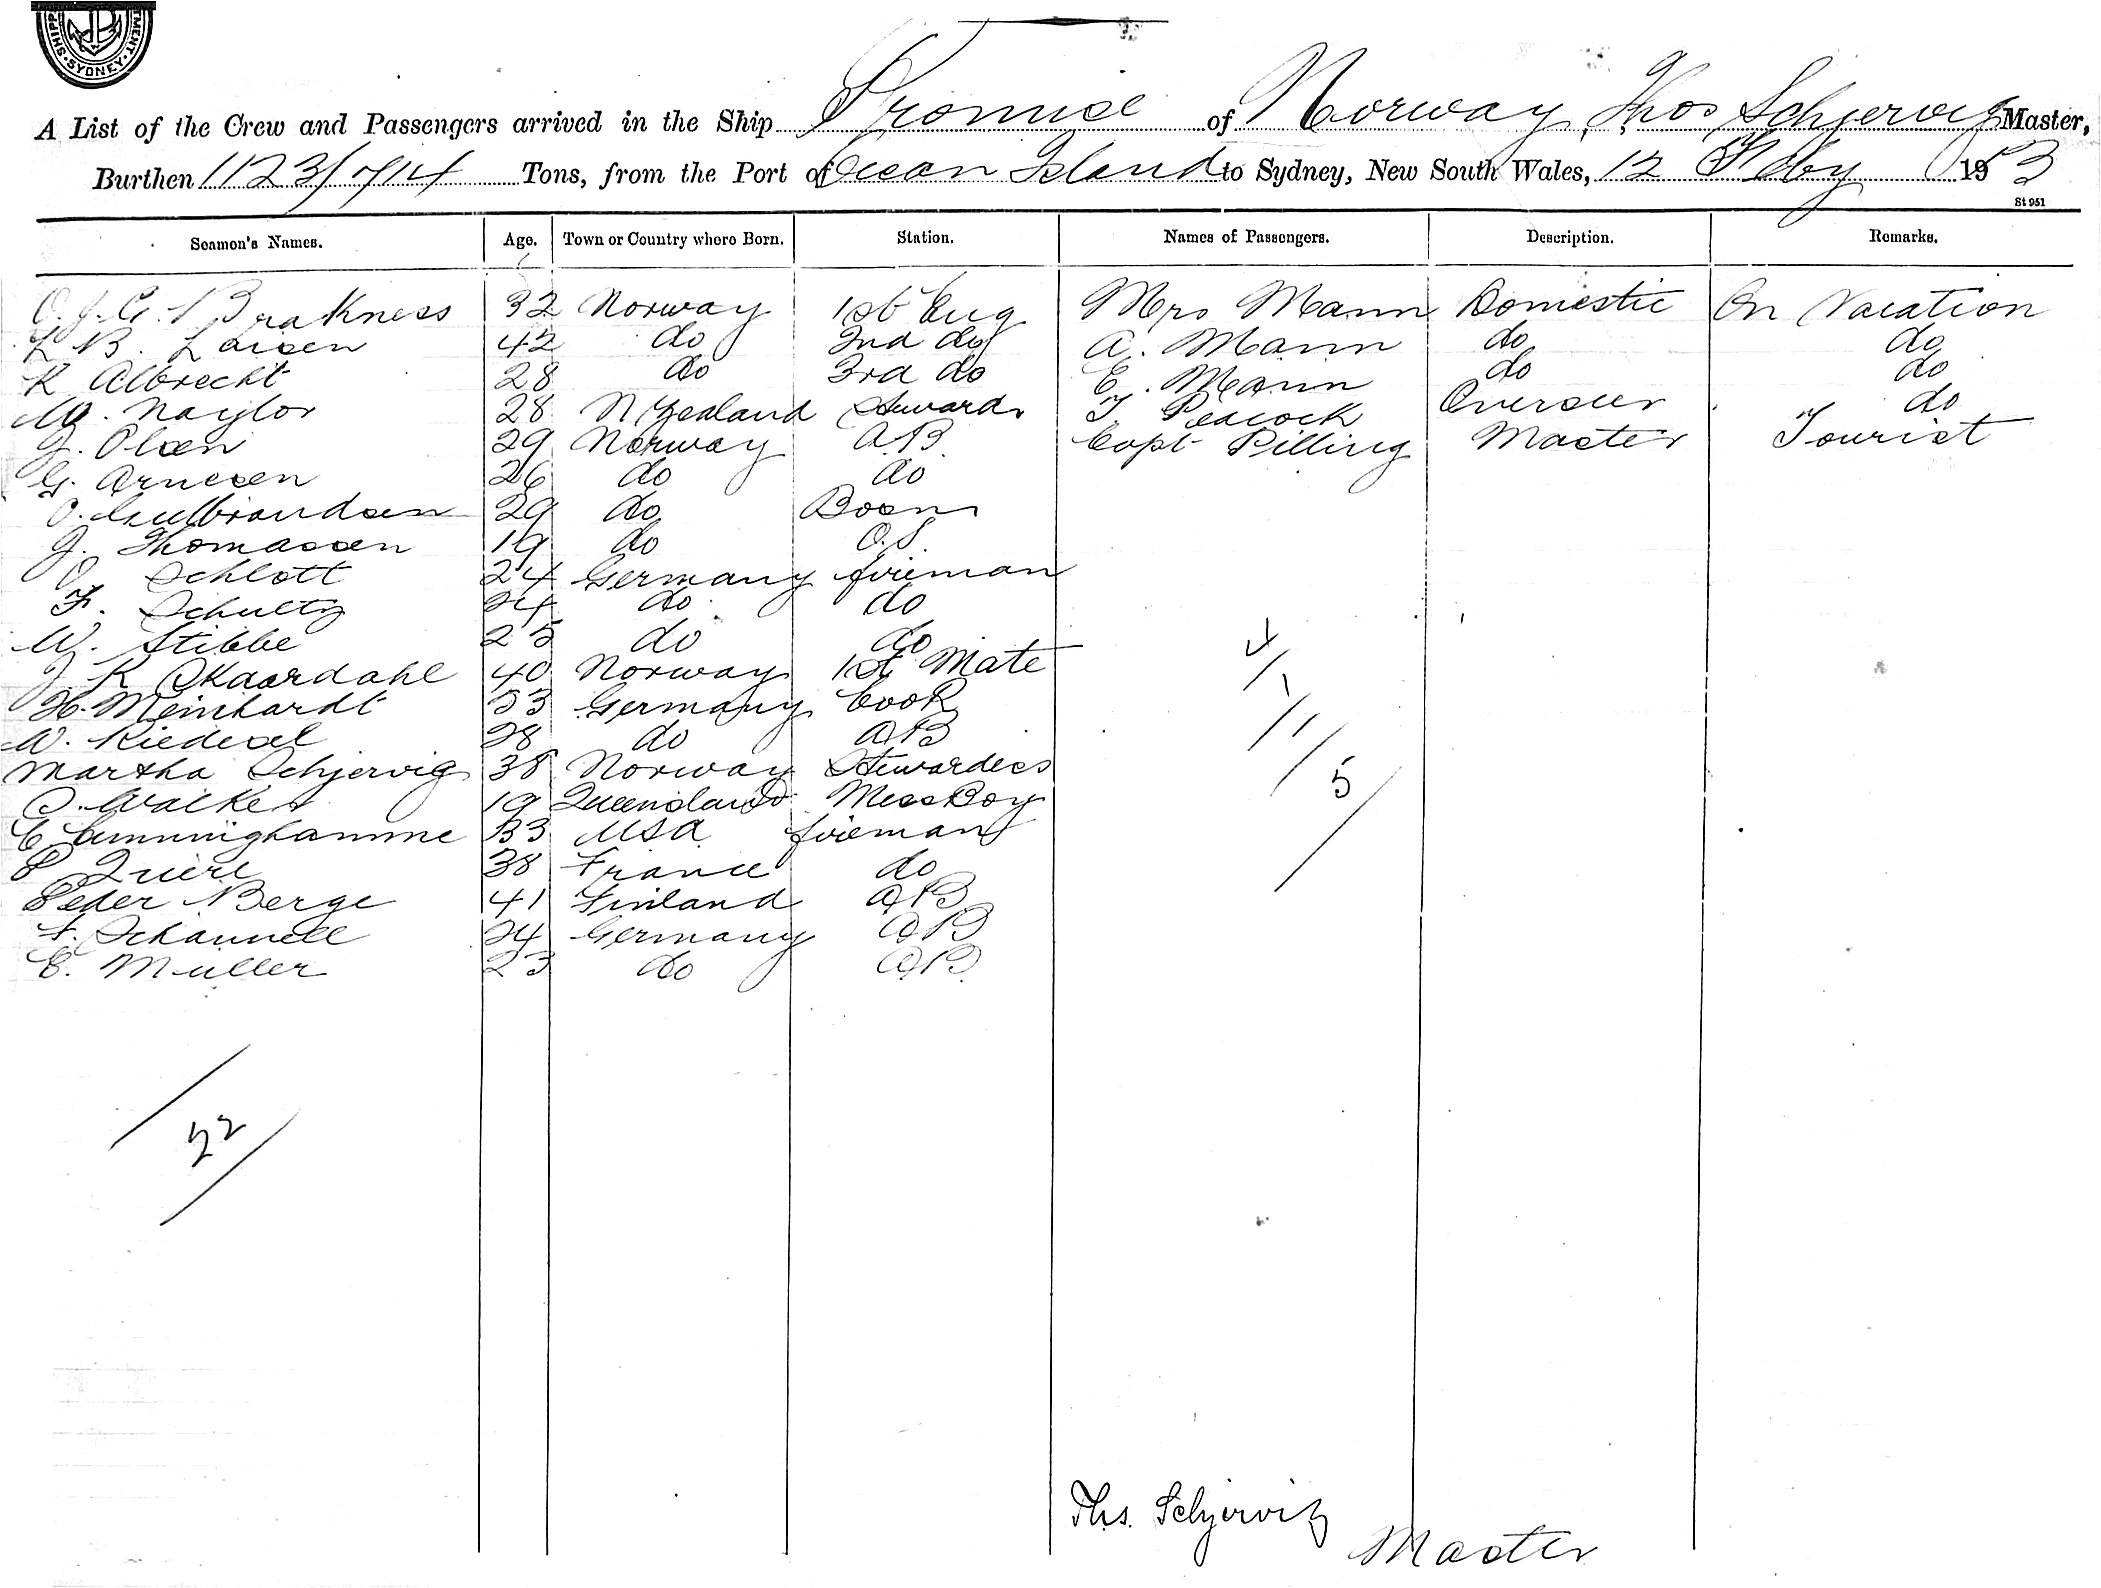 SHIPP MENT SYDNEY
A List of the Crew and Passengers arrived in the Ship Promise of Norway, Thos Schjervig Master,
Burthen 1123/714 Tons, from the Port of Ocean Island to Sydney, New South Wales, 12 Feby 1903
St 951
Seamen's Names. Age. Town or Country where Born. Station. Names of Passengers. Description. Remarks.
Brakness 32 Norway 1st Eng Mrs Mann Domestic On Vacation
L B. Larsen 42 do 2nd do A. Mann do do
K Albrecht 28 do 3rd do E. Mann do do
W. Naylor 28 N Zealand Steward T Peacock Overseer do
J. Olsen 29 Norway A.B. Capt Pilling Master Tourist
G. Arnesen 26 do do
O. Gulbrandsen 29 do Bosn
J. Thomassen 19 do O.S.
O. Schlott 24 Germany fireman
F. Schultz 24 do do
W. Stibbe 25 do do
J K Skaardahl 40 Norway 1st Mate
H. Meinhardt 33 Germany Cook
W. Riedesel 28 do AB
Martha Schjervig 38 Norway Stewardess
Walker 19 Queensland Mess Boy
C Cunninghamme 33 USA fireman
38 France do
Peder Berge 41 Finland AB
F. 24 Germany AB
E. Muller 23 do AB.
1
1
5
22
Ths. Schjervig
Master